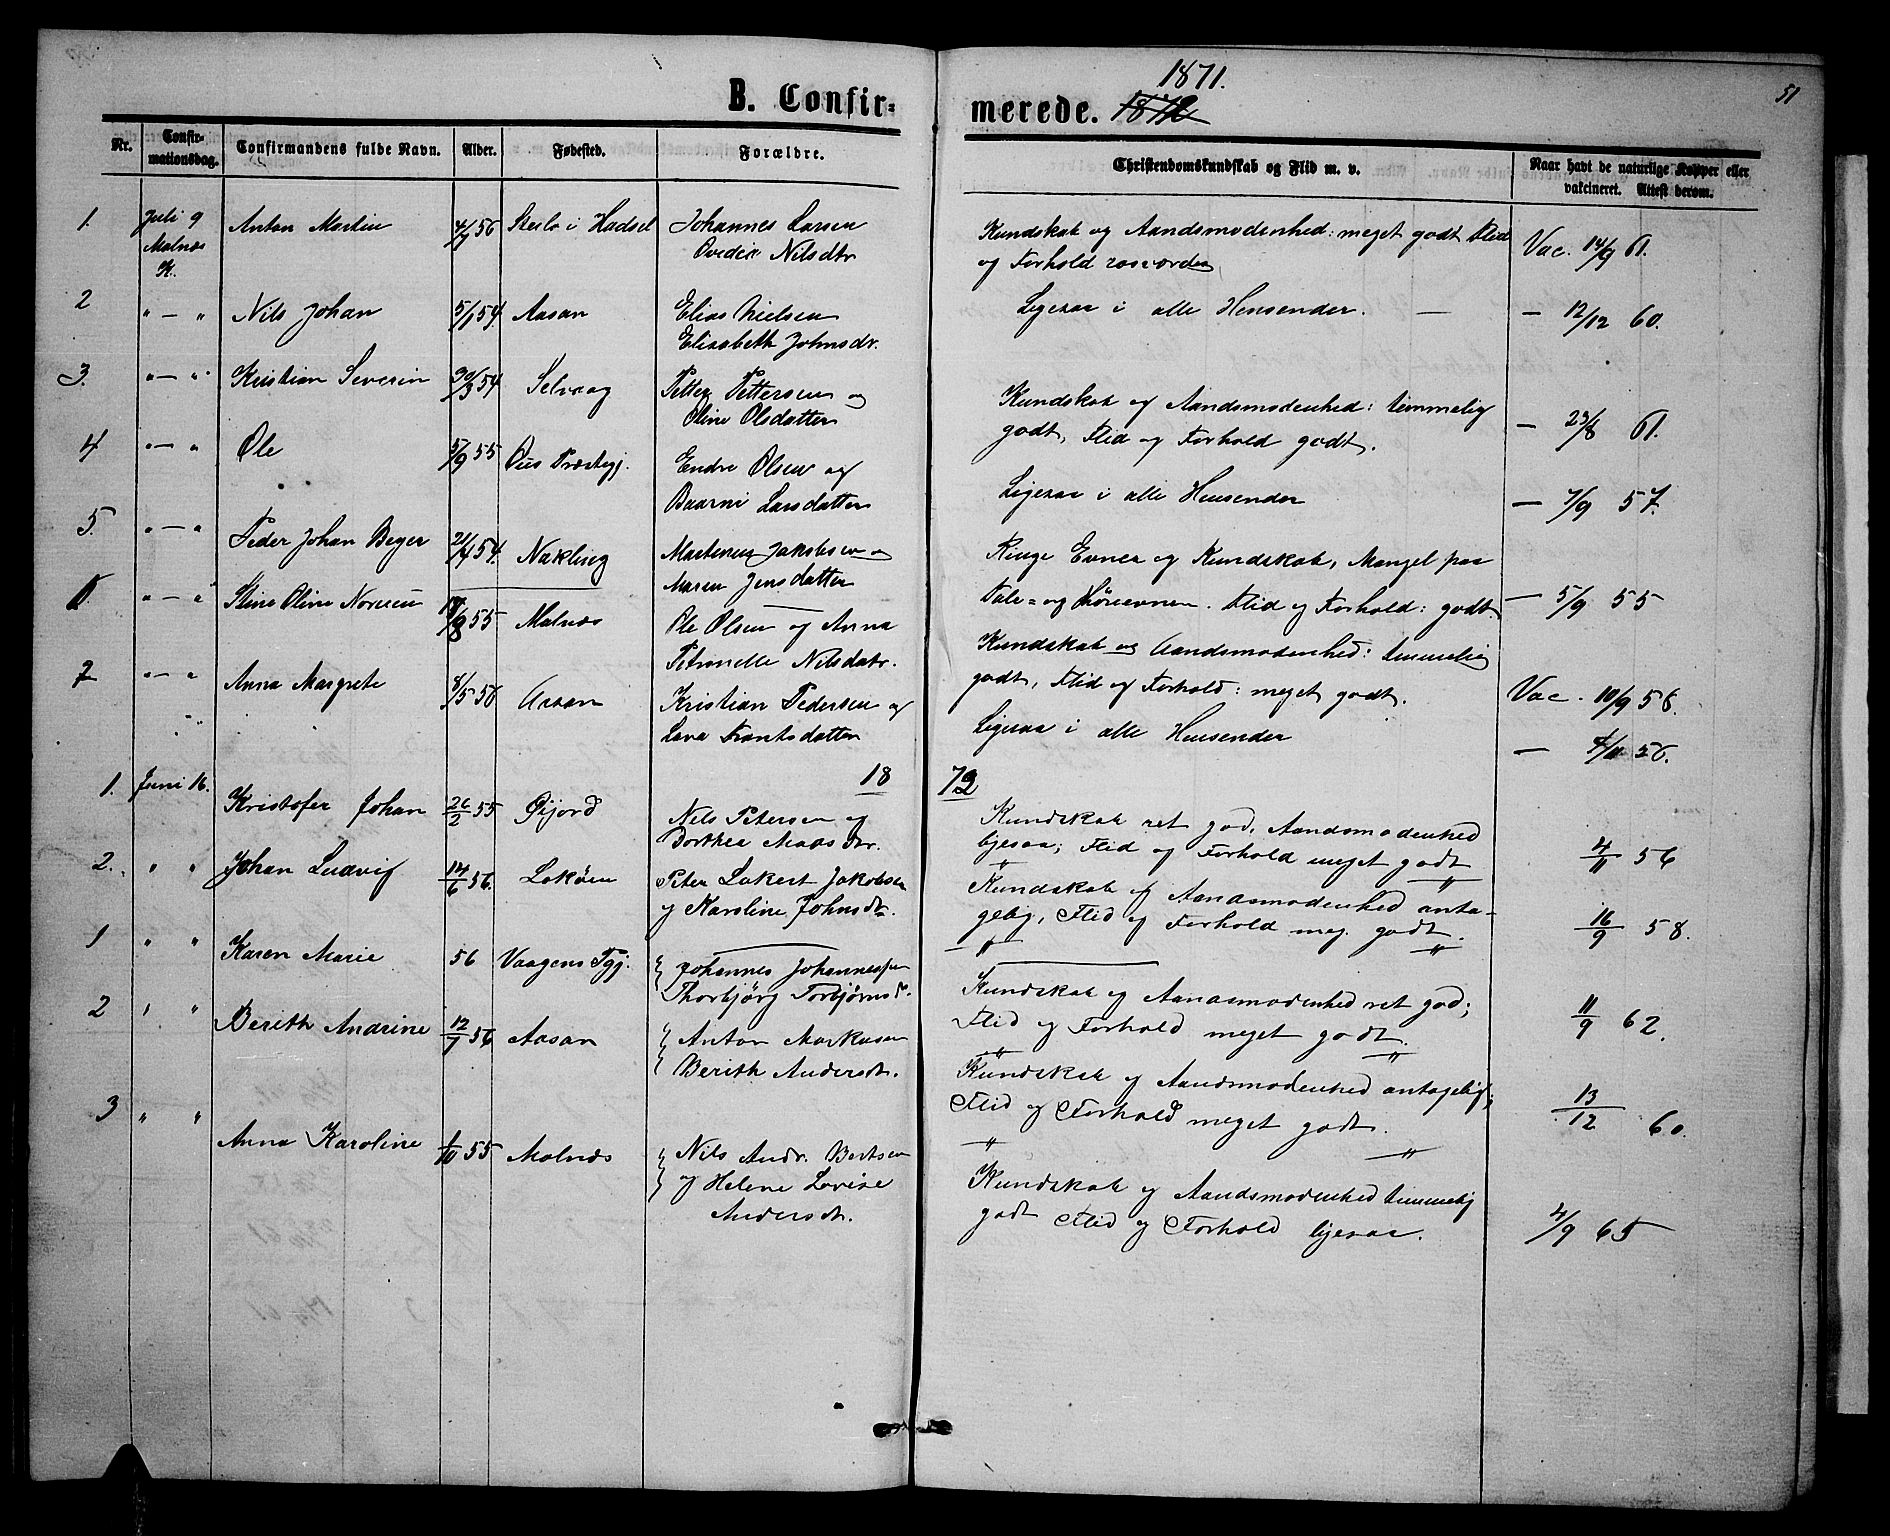 1871.
51
B. Confir-
merede. 1872
Nr.
Confir-
mationsdag.
Confirmandens fulde Navn.
Alder.
Fødested.
Forældre.
Christendomskundskab og Flid m. v.
Naar havt de naturlige Kopper eller
vakcineret. Attest derom.
1. Juli 9 Anton Martin 4/7 56 i Hadsel Johannes Larsen Kundskab og Aandsmodenhed: meget godt Flid Vac. 14/9 61.
Malnæs Nilsdtr og Forhold
K.
2 " — " Nils Johan 5/1 54 Aasan Elias Nielsen Ligesaa i alle Hensender. — — 12/12 60.
Elisabeth Johnsdr.
3. " — " Kristian Severin 30/3 54 Selvaag Petter Pettersen og Kundskab og Aandsmodenhed: temmelig — 23/8 61.
Oline Olsdatter godt, Flid og Forhold godt.
4 " — " Ole 5/9 55 Øus Præstegj. Endre Olsen og Ligesaa i alle Hensender — 7/9 57.
Larsdatter
5. " — " Peder Johan Beyer 21/4 54. Nøkling Martinus Jakobsen og Ringe Evner og Kundskab, Mangel paa — 5/9 55
Maren Jensdatter Tale= og Høreevnen. Flid og Forhold: godt.
1. " — " Stine Oline 55 Malnæs Ole Olsen og Anna Kundskab og Aandsmodenhed: temmelig Vac. 10/9 58.
Petronelle Nilsdatr. godt, Flid og Forhold: meget godt.
2 " — " Anna Margrete 8/5 56 Aasan Kristian Pedersen og Ligesaa i alle Hensender — 56.
" " Lava Frantsdatter
18 72
1. Juni 16. Kristofer Johan 26/2 55 Øijord Nils Petersen og Kundskab ret god, Aandsmodenhed 4/11 56
Dorthea Madsdtr. ligesaa; Flid og Forhold meget godt
" "
2. " " Johan Ludvig 14/6 56. Lakøen Peter Lakert Jakobsen Kundskab og Aandsmodenhed anta- 16/9 58.
og Karoline Johnsdtr. gelig, Flid og Forhold meg. godt.
" "
1 " " Karen Marie 56 Vaagens Pgj. Johannes Johannessen Kundskab og Aandsmodenhed ret god; 11/9 62.
Thorbjørg Torbjørnsd. Flid og Forhold meget godt.
" "
2 " " Berith Andrine 12/7 56 Aasan Anton Markusen Kundskab og Aandsmodenhed antagelig; 13/12 60.
Berith Andersdt. Flid og Forhold meget godt.
" "
3 " " Anna Karoline 1/10 55 Malnæs Nils Andr. Bertsen Kundskab og Aandsmodenhed temmelig 4/9 65
og Helene Lovise godt Flid og Forhold ligesaa.
Andersdt.